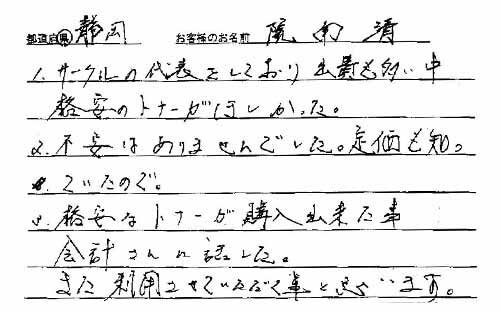 都道府県 静岡 お客様のお名前 南 清
1. サークルの代表をしており出費も多い中
格安のトナーがほしかった。
2. 不安はありませんでした。定価も知っ
ていたので。
3. 格安なトナーが購入出来た事
会計さんに話した。
また利用させていただく事と思います。